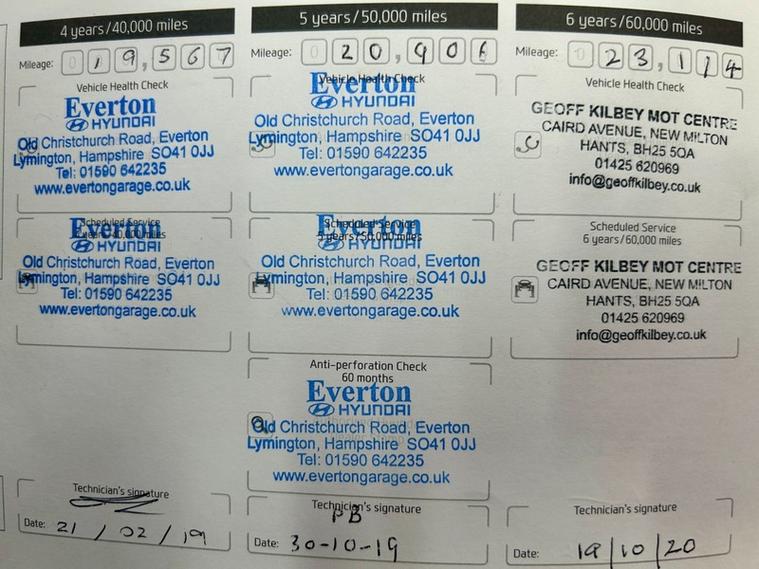 4 years/40,000 miles
Mileage: 019,567
Vehicle Health Check
Everton
HYUNDAI
Old Christchurch Road, Everton
Lymington, Hampshire SO41 0JJ
Tel: 01590 642235
www.evertongarage.co.uk
Scheduled Service
4 years/40,000 miles
Everton
HYUNDAI
Old Christchurch Road, Everton
Lymington, Hampshire SO41 0JJ
Tel: 01590 642235
www.evertongarage.co.uk
Technician's signature
Date: 21 / 02 / 19
5 years/50,000 miles
Mileage: 020,406
Vehicle Health Check
Everton
HYUNDAI
Old Christchurch Road, Everton
Lymington, Hampshire SO41 0JJ
Tel: 01590 642235
www.evertongarage.co.uk
Scheduled Service
5 years/50,000 miles
Everton
HYUNDAI
Old Christchurch Road, Everton
Lymington, Hampshire SO41 0JJ
Tel: 01590 642235
www.evertongarage.co.uk
Anti-perforation Check
60 months
Everton
HYUNDAI
Old Christchurch Road, Everton
Lymington, Hampshire SO41 0JJ
Tel: 01590 642235
www.evertongarage.co.uk
Technician's signature
PB
Date: 30-10-19
6 years/60,000 miles
Mileage: 023,114
Vehicle Health Check
GEOFF KILBEY MOT CENTRE
CAIRD AVENUE, NEW MILTON
HANTS, BH25 5QA
01425 620969
info@geoffkilbey.co.uk
Scheduled Service
6 years/60,000 miles
GEOFF KILBEY MOT CENTRE
CAIRD AVENUE, NEW MILTON
HANTS, BH25 5QA
01425 620969
info@geoffkilbey.co.uk
Technician's signature
Date: 19/10/20